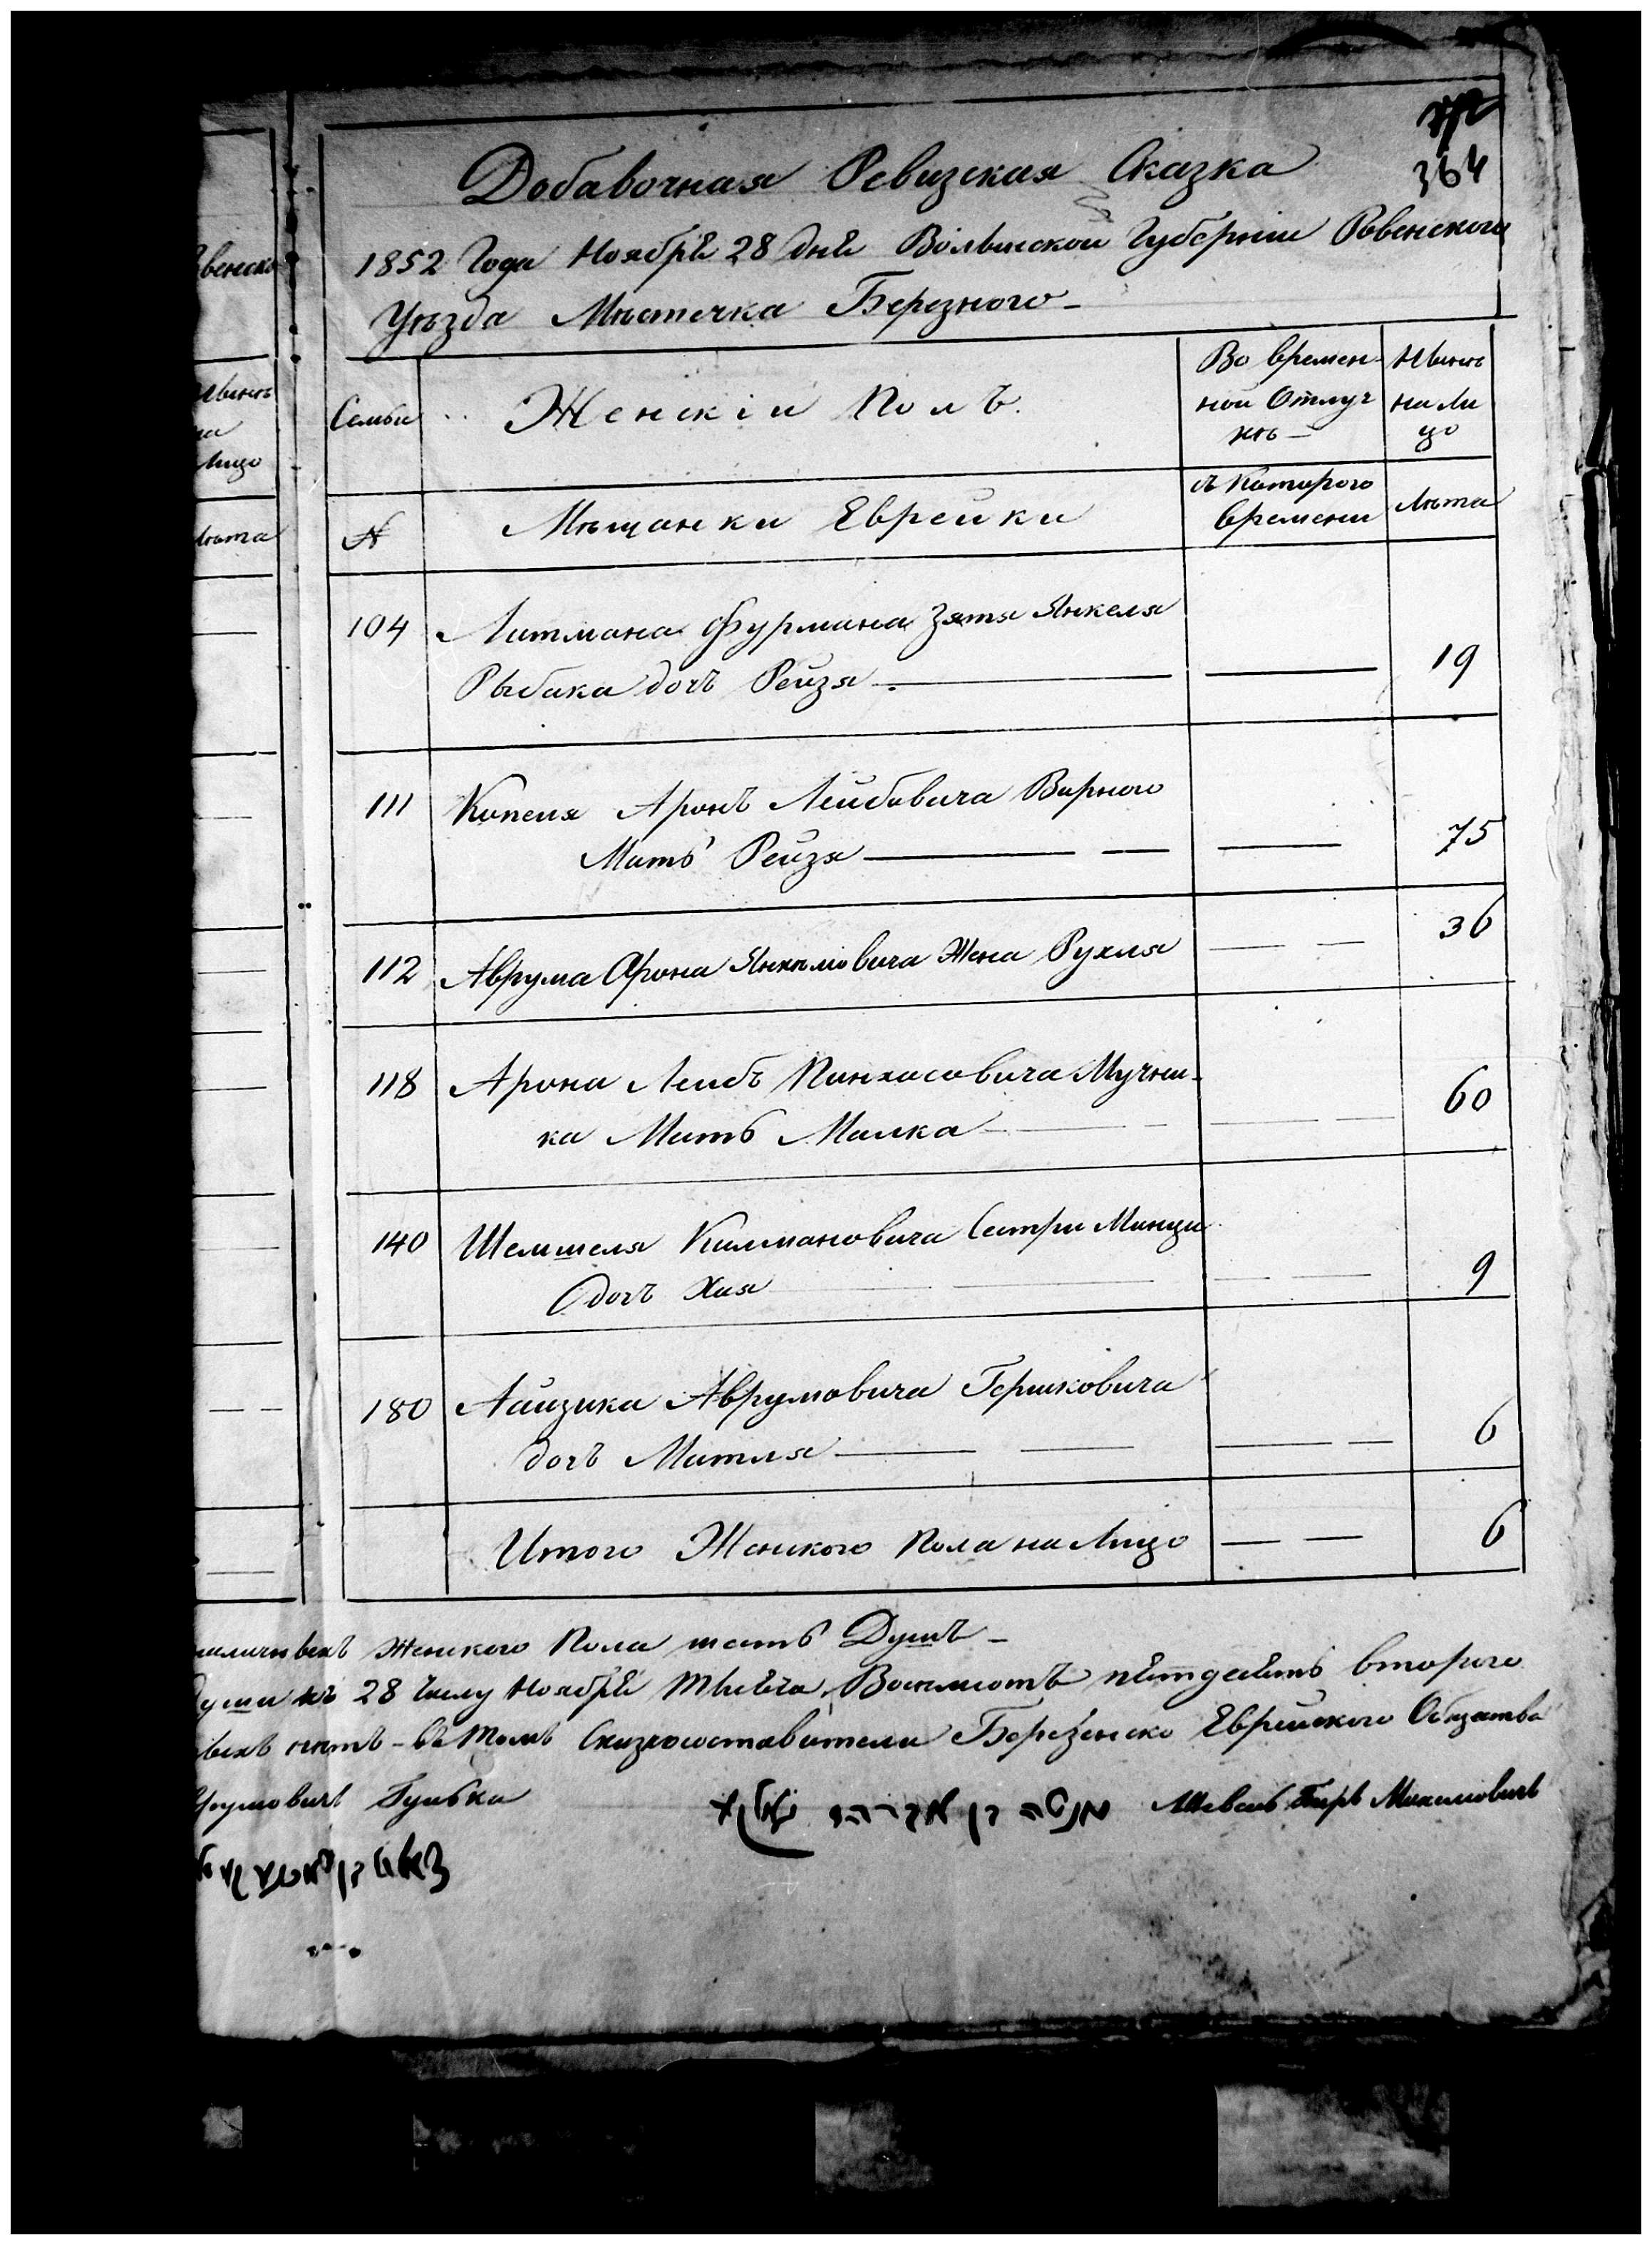 364
Добавочная Ревизская Сказка
1852 Года Ноября 28 дня Волынской Губернии Ровенского
Уѣзда Мѣстечка Березного
Семьи
Женскій Полъ
Во времен-
ной Отлуч
кѣ
Нынѣ
на Ли
цо
№
Мѣщанки Еврейки
съ Которого
времени
Лѣта
104 Литмана Фурмана Зятя Янкеля
Рыбака дочъ Рейзя 19
111 Копеля Аронъ Лейбовича Вирного
Мать Рейзя 75
112 Аврума Арона Янкелювича Жена Рухля 36
118 Арона Лейбъ Пинхасовича Мучни-
ка Мать Малка 60
140 Шемшеля Килмановича Сестри Минци
дочъ Хая 9
180 Айзика Аврумовича Гершковича
дочъ Митля 6
Итого Женского Пола на Лицо 6
Женского Пола шесть Душъ
28 Числу Ноября Восемсотъ пятдесятъ второго
нѣтъ - въ томъ Сказкосоставители Березенско Еврейского Общества
Гулька
מנשה בן אברהם